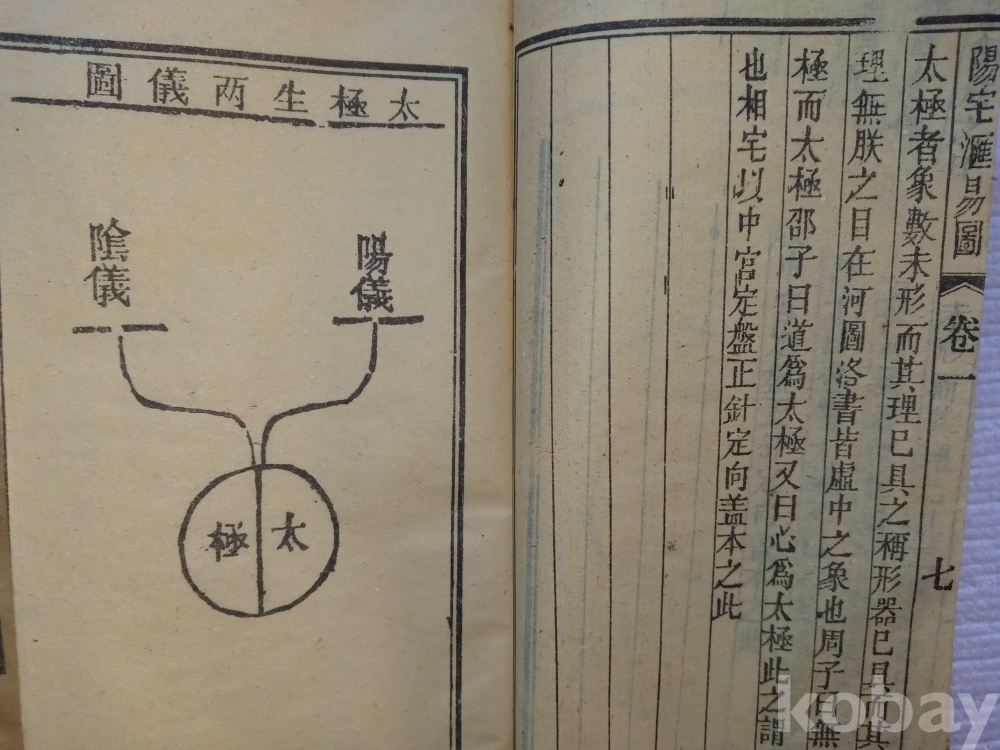 陽宅滙易圖 卷一 七
太極者象數未形而其理已具之稱形器已具而其
理無朕之目在河圖洛書皆虛中之象也周子曰無
極而太極邵子曰道爲太極又曰心爲太極此之謂
也相宅以中宮定盤正針定向盖本之此
太極生两儀圖
陽儀
陰儀
太極
kobay